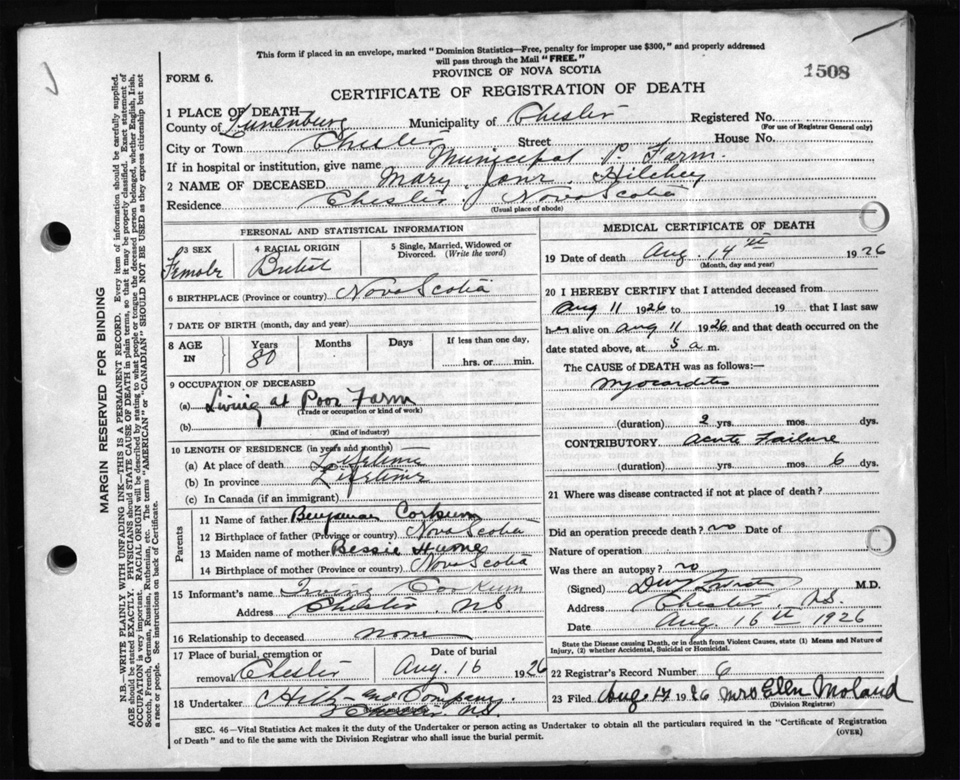 This form if placed in an envelope, marked "Dominion Statistics—Free, penalty for improper use $300," and properly addressed
will pass through the Mail "FREE."
PROVINCE OF NOVA SCOTIA
FORM 6.
1508
CERTIFICATE OF REGISTRATION OF DEATH
1 PLACE OF DEATH
County of Lunenburg Municipality of Chester Registered No.
(For use of Registrar General only)
City or Town Chester Street House No.
If in hospital or institution, give name Municipal P. Farm.
2 NAME OF DECEASED Mary Jane Hilchey
Residence Chester Nova Scotia
(Usual place of abode)
PERSONAL AND STATISTICAL INFORMATION
3 SEX Female
4 RACIAL ORIGIN British
5 Single, Married, Widowed or
Divorced. (Write the word)
6 BIRTHPLACE (Province or country) Nova Scotia
7 DATE OF BIRTH (month, day and year)
8 AGE IN Years Months Days If less than one day,
80 hrs. or min.
9 OCCUPATION OF DECEASED
(a) Living at Poor Farm
(Trade or occupation or kind of work)
(b)
(Kind of industry)
10 LENGTH OF RESIDENCE (in years and months)
(a) At place of death Lifetime
(b) In province Lifetime
(c) In Canada (if an immigrant)
Parents
11 Name of father Benjamin Corkum
12 Birthplace of father (Province or country) Nova Scotia
13 Maiden name of mother Bessie Hume
14 Birthplace of mother (Province or country) Nova Scotia
15 Informant's name Irving Corkum
Address Chester, N.S
16 Relationship to deceased none
17 Place of burial, cremation or Date of burial
removal Chester Aug. 16 1926
18 Undertaker and Company
Chester N.S.
MEDICAL CERTIFICATE OF DEATH
19 Date of death Aug. 14th 1926
(Month, day and year)
20 I HEREBY CERTIFY that I attended deceased from
Aug 11 1926 to 19 that I last saw
her alive on Aug 11 1926 and that death occurred on
date stated above, at 5 a m.
The CAUSE of DEATH was as follows:—
Myocarditis
(duration) 2 yrs. mos. dys.
CONTRIBUTORY Acute Failure
(duration) yrs. mos. 6 dys.
21 Where was disease contracted if not at place of death?
Did an operation precede death? no Date of
Nature of operation
Was there an autopsy? no
(Signed) M.D.
Address Chester, N.S.
Date Aug. 16th 1926
State the Disease causing Death, or in death from Violent Causes, state (1) Means and Nature of
Injury, (2) whether Accidental, Suicidal or Homicidal.
22 Registrar's Record Number 6
23 Filed Aug 17 1926 Mrs Ellen Moland
(Division Registrar)
SEC. 46—Vital Statistics Act makes it the duty of the Undertaker or person acting as Undertaker to obtain all the particulars required in the "Certificate of Registration
of Death" and to file the same with the Division Registrar who shall issue the burial permit.
(OVER)
MARGIN RESERVED FOR BINDING
N.B.—WRITE PLAINLY WITH UNFADING INK—THIS IS A PERMANENT RECORD. Every item of information should be carefully supplied.
AGE should be stated EXACTLY. PHYSICIANS should STATE CAUSE OF DEATH in plain terms, so that it may be properly classified. Exact statement of
OCCUPATION is very important. RACIAL ORIGIN will be described by stating to what people or tongue the deceased person belonged, whether English, Irish,
Scotch, French, German, Russian, Ruthenian, etc. The terms "AMERICAN" or "CANADIAN" SHOULD NOT BE USED as they express citizenship but not
a race or people. See instructions on back of Certificate.